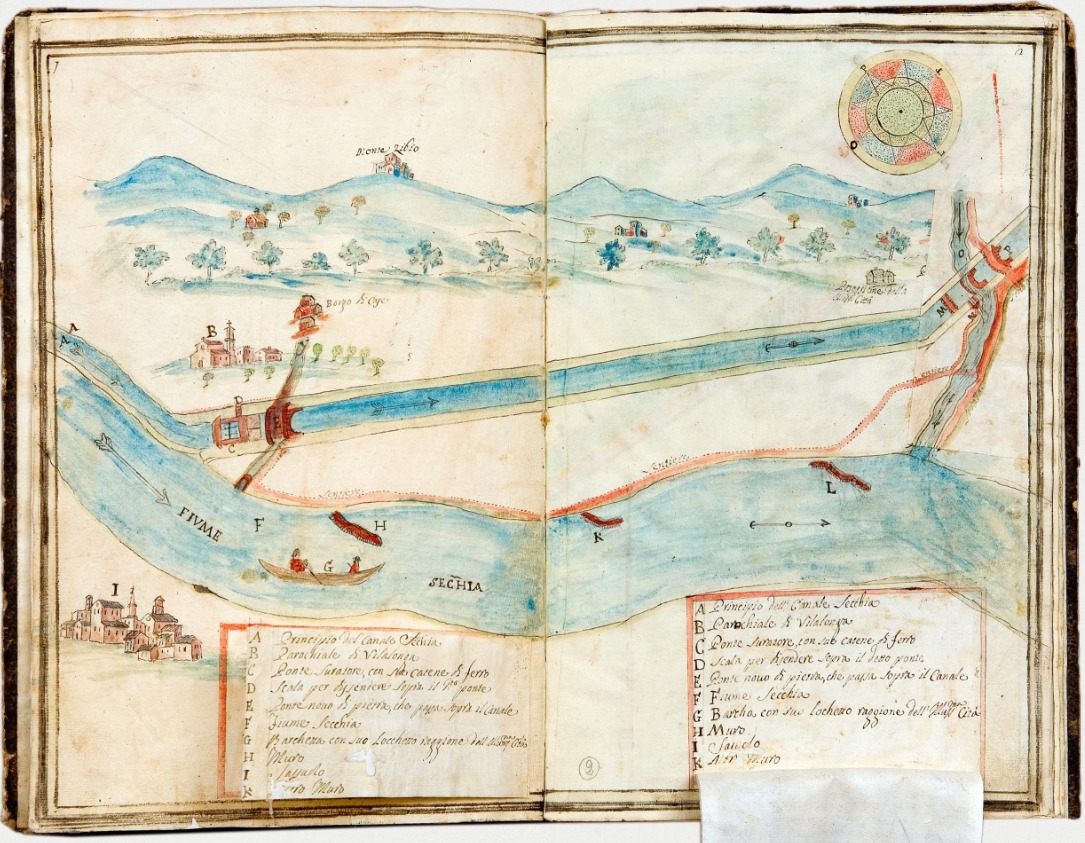 1
2
P
T
O
L
Monte Zibio
Borgo di Case
A
B
D
C
E
O
P
M
N
sentiero
Sentiero
Sentiero
F
H
K
L
FIVME
G
SECHIA
I
A Principio del Canale Sechia
B Parochiale di Vilalonga
C Ponte Suratore, con sue catene di ferro
D Scala per dissendere sopra il ponte
E Ponte novo di pietra, che passa sopra il Canale
F Fiume Secchia
G Barchetta con suo Locchetto raggione dell' Città
H Muro
I Sassuolo
K Muro
A Principio dell' Canale Secchia
B Parochiale di Vilalonga
C Ponte Suratore, con sue catene di ferro
D Scala per disendere sopra il detto ponte
E Ponte novo di pietra, che passa sopra il Canale
F Fiume Secchia
G Barcha con suo lochetto raggione dell' Città
H Muro
I
K Altro Muro
8